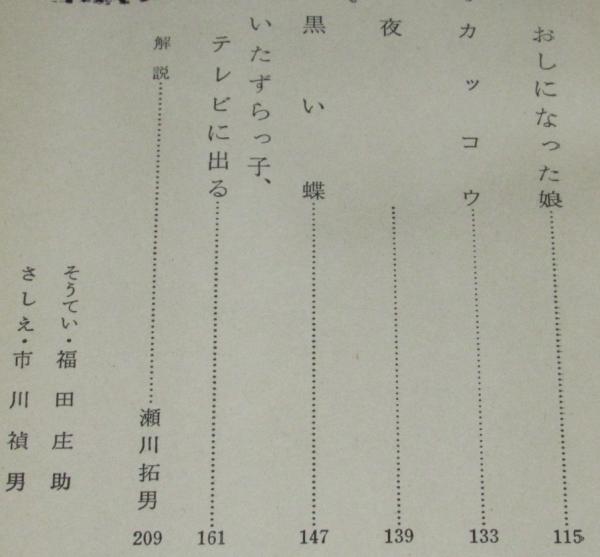 おしになった娘 115
カッコウ 133
夜 139
黒い蝶 147
いたずらっ子、
テレビに出る 161
解説 瀬川拓男 209
そうてい・福田庄助
さしえ・市川禎男